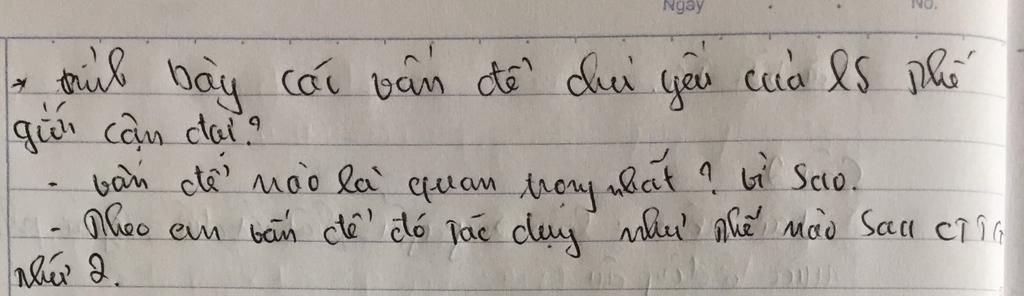 Ngày No.
* trình bày các vấn đề chủ yếu của LS thế
giới cận đại?
- vấn đề nào là quan trọng nhất? vì sao.
- Theo em vấn đề đó tác dụng như thế nào sau CTTG
thứ 2.